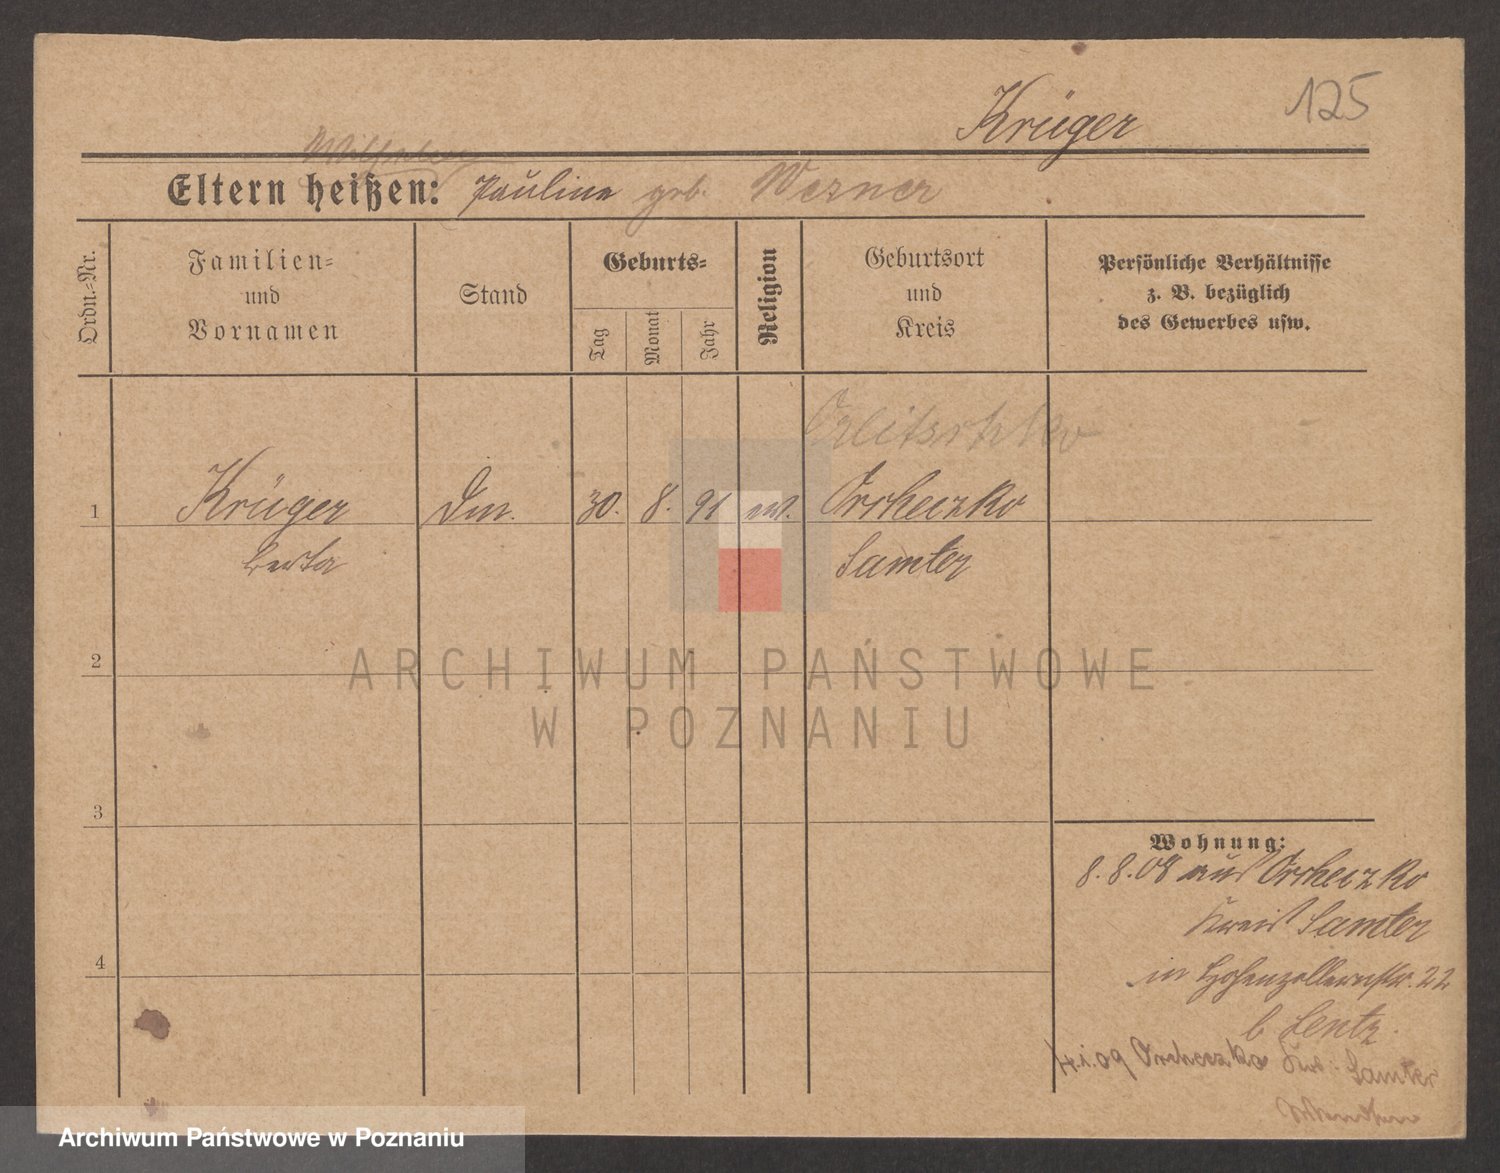 Krüger
125
Eltern heißen: Pauline geb. Werner
Ordn.-Nr.
Familien-
und
Vornamen
Stand
Geburts-
Tag
Monat
Jahr
Religion
Geburtsort
und
Kreis
Persönliche Verhältnisse
z. B. bezüglich
des Gewerbes usw.
1
Krüger
Berta
Dm.
30.
8.
91
ev.
Orcheczko
Samter
2
3
4
Wohnung:
8.8.08 aus Orcheczko
Kreis Samter
in Hohenzollernstr. 22
b Lentz.
14.1.09 Orcheczko Samter
ARCHIWUM PAŃSTWOWE
W POZNANIU
Archiwum Państwowe w Poznaniu